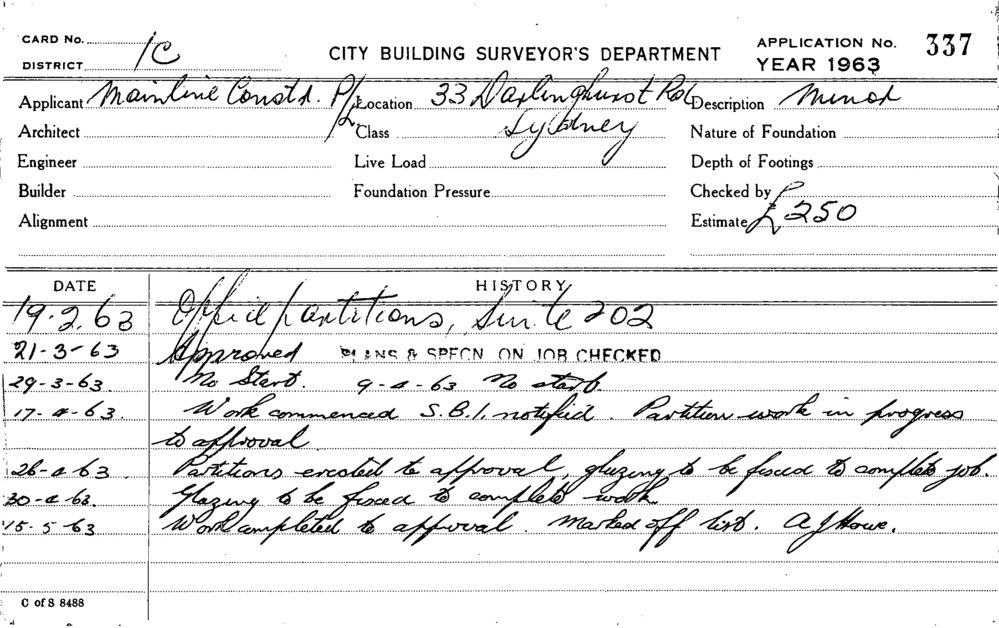 CARD No. 1C CITY BUILDING SURVEYOR'S DEPARTMENT APPLICATION No. 337
DISTRICT YEAR 1963
Applicant Mainline Constr. P/L Location 33 Darlinghurst Rd Description Minor
Architect Class Sydney Nature of Foundation
Engineer Live Load Depth of Footings
Builder Foundation Pressure Checked by
Alignment Estimate £250
DATE HISTORY
19.2.63 Office partitions, Suite 202
21-3-63 Approved PLANS & SPECN ON JOB CHECKED
29-3-63. No Start. 9-4-63 No start.
17-4-63. Work commenced S.B.I. notified. Partition work in progress
to approval
26-4-63. Partitions erected to approval, glazing to be fixed to complete job.
30-4-63. Glazing to be fixed to complete work
15-5-63 Work completed to approval. Marked off list. A J Howe.
C of S 8488